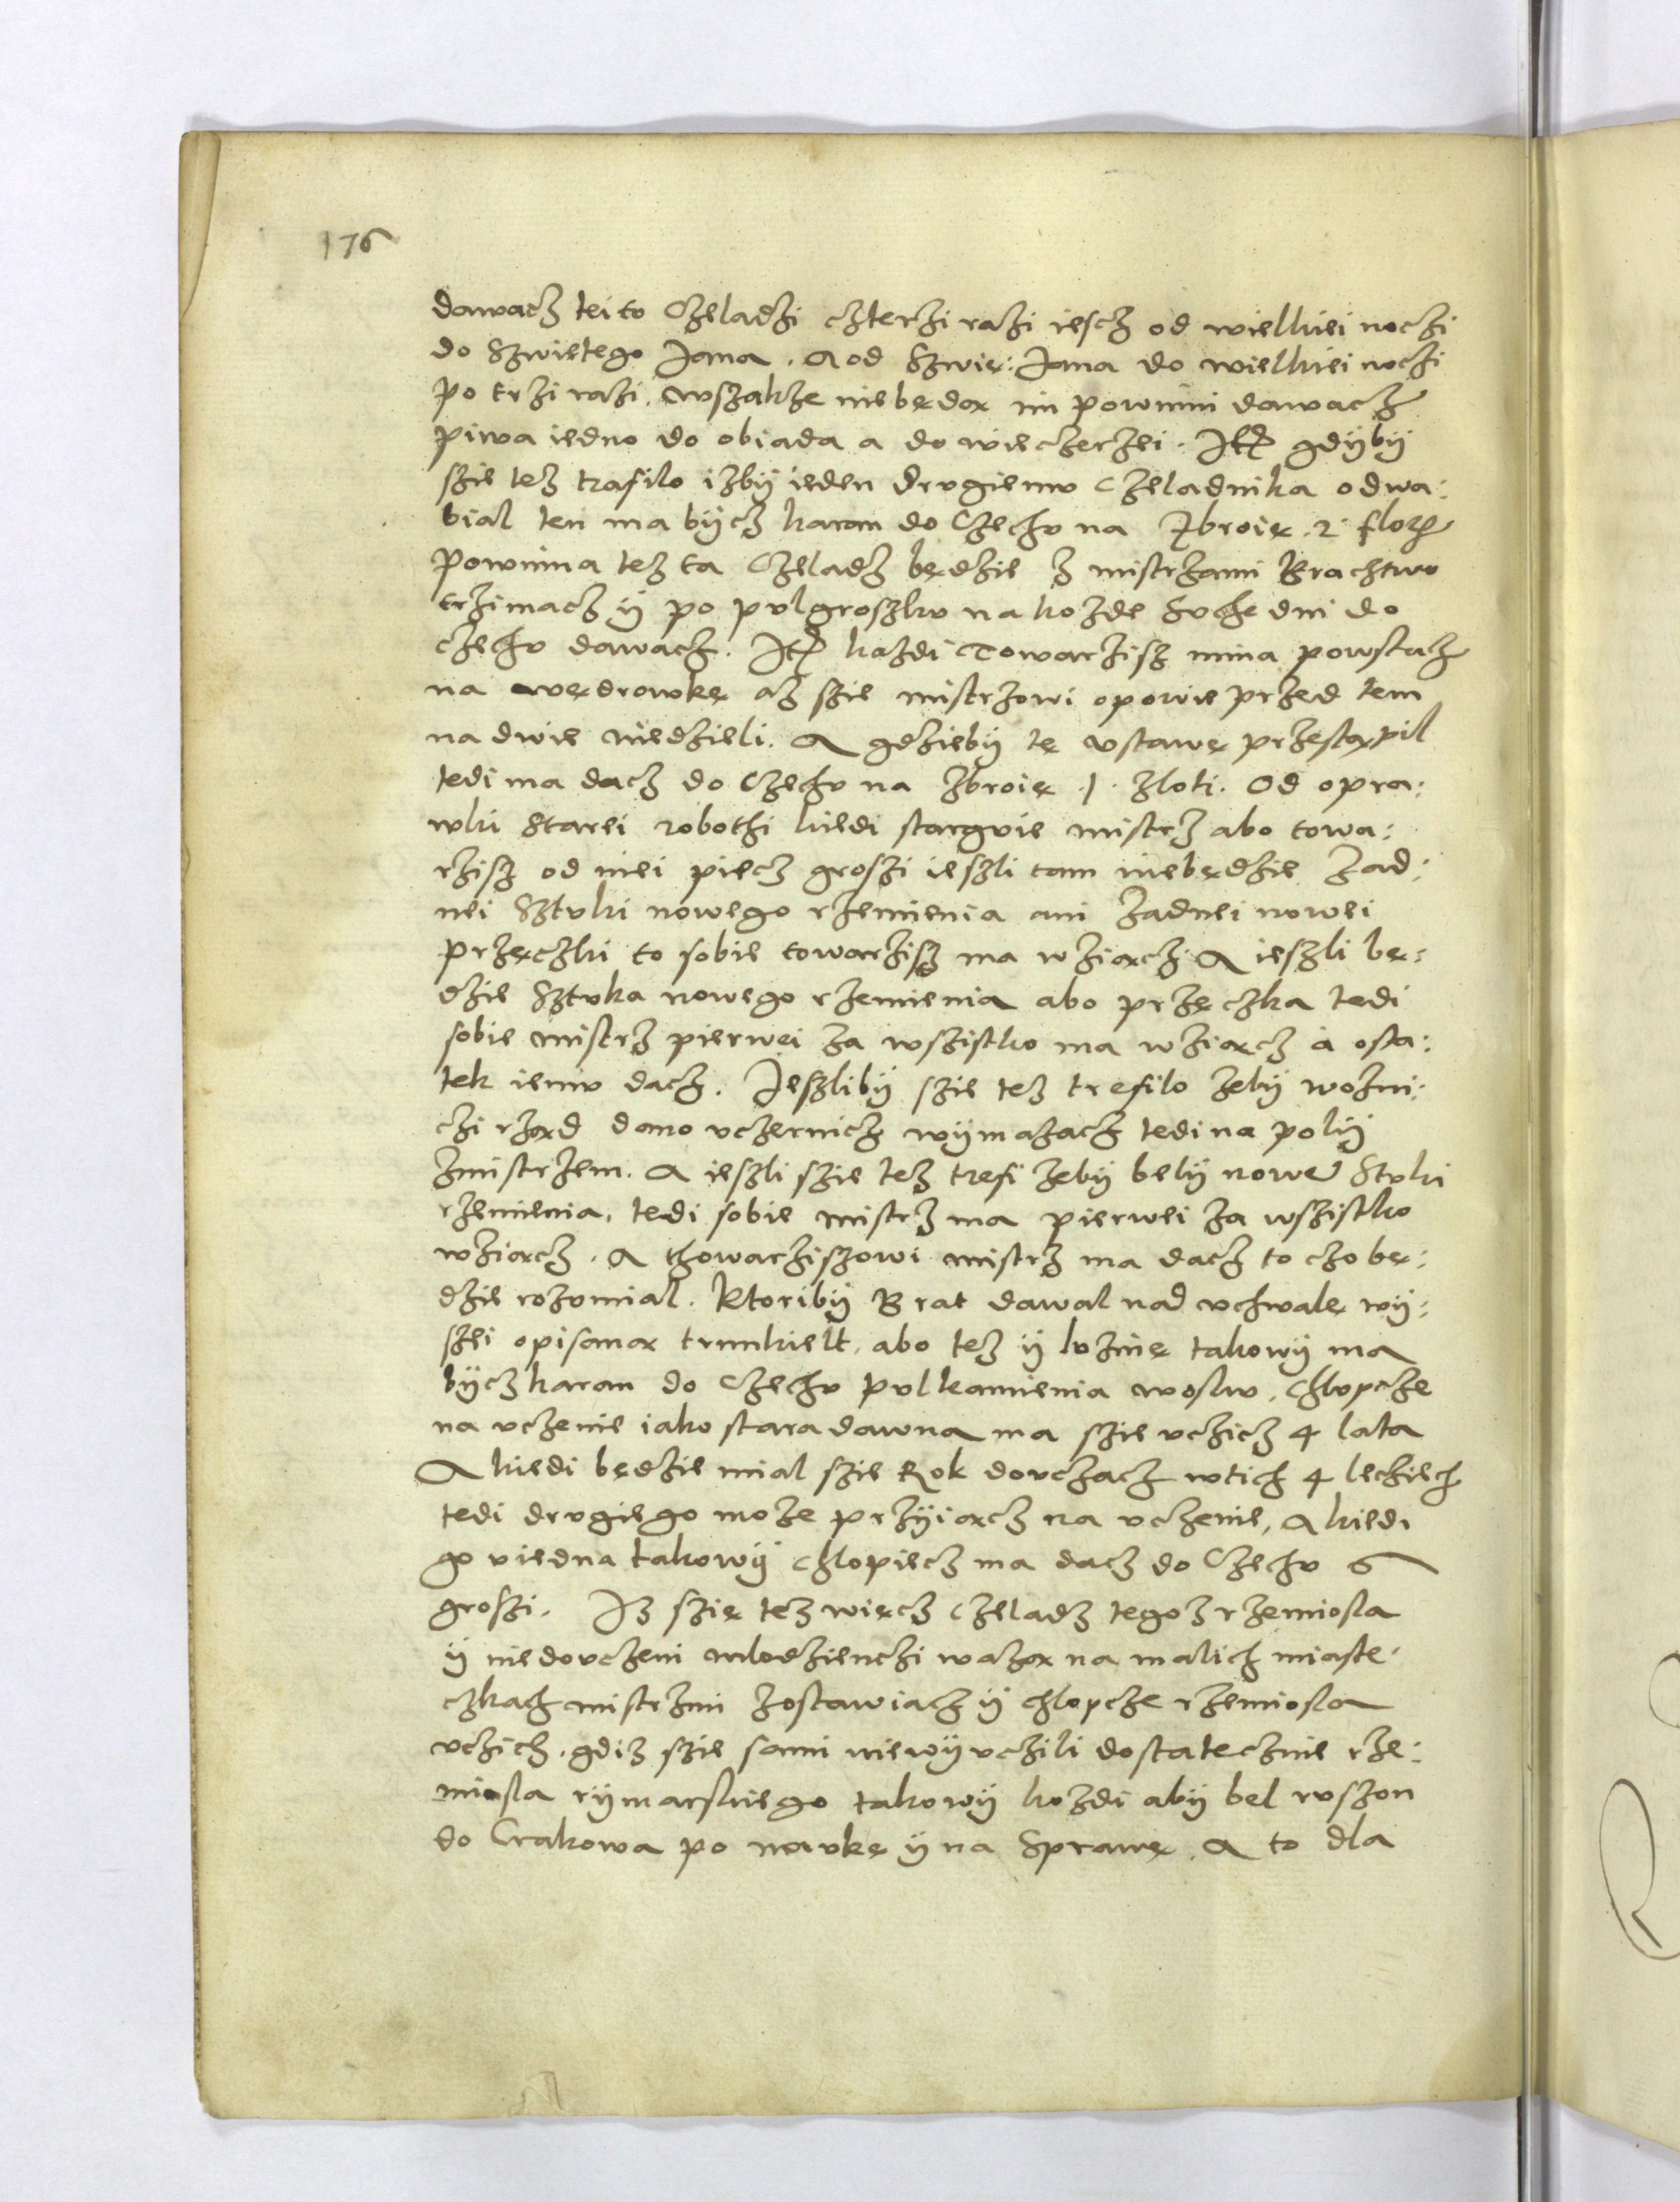 176
dawacz tei to Czeladzi czterzi razi iescz od wielkiei noczi
do Szwietego Jana. A od Szwię: Jana do wielkiei noczi
po trzi razi. wszakze niebędą im powinni dawacz
piwa iedno do obiada a do wieczerzei. Itē gdÿbÿ
szie tez trafilo izbÿ ieden drugiemu Czeladnika odwa:
bial ten ma bÿcz karan do Czechu na Zbroię 2 flor
powinna tez ta Czeladz będzie z mistrzami Brachtwo
trzimacz ÿ po pulgroszku na kozde Suche dni do
czechu dawacz. Itē kazdi Towarzisz nima powstacz
na wędrowkę az szie mistrzowi opowie przed tem
na dwie niedzieli. A gdziebÿ tę ustawę przestąpil
tedi ma dacz do Czechu na zbroię 1 zloti. Od opra:
wki Starei robothi kiedi starguie mistrz abo towa:
rzisz od niei piecz groszi ieszli tam niebędzie zad:
nei Sztuki nowego rzemienia ani zadnei nowei
przęczki to sobie towarzisz ma wziącz A ieszli bę:
dzie Sztuka nowego rzemienia abo przęczka tedi
sobie mistrz pierwei za wszistko ma wziącz a osta:
tek iemu dacz. Jeszlibÿ szie tez trefilo zebÿ wozni:
czi rząd dano uczernicz wÿmazacz tedi na polÿ
zmistrzem. A ieszli szie tez trefi zebÿ belÿ nowe Stuki
rzemienia, tedi sobie mistrz ma pierwei za wszistko
wziącz. A thowarziszowi mistrz ma dacz to czo bę:
dzie rozumial. Ktoribÿ Brat dawal nad uchwalę wÿ:
szei opisaną trunkielt, abo tez ÿ luznię takowÿ ma
bÿcz karan do Czechu pulkamienia wosku. Chlopcze
na uczenie iako stara dawna ma szie uczicz 4 lata
A kiedi będzie mial szie Rok douczacz wtich 4 leciech
tedi drugiego moze przÿiącz na uczenie, A kiedi
go uiedna takowÿ Chlopiecz ma dacz do Czechu 6
groszi. Iz szię tez więcz Czeladz tegoz rzemiosla
ÿ niedouczeni mlodzienczi wazą na malich miaste:
czkach mistrzmi zostawiacz ÿ chlopcze rzemiosla
uczich. gdiz szie sami niewÿuczili dostatecznie rze:
miosla rÿmarskiego takowÿ kozdi abÿ bel ruszon
do Crakowa po naukę ÿ na Sprawę. A to dla